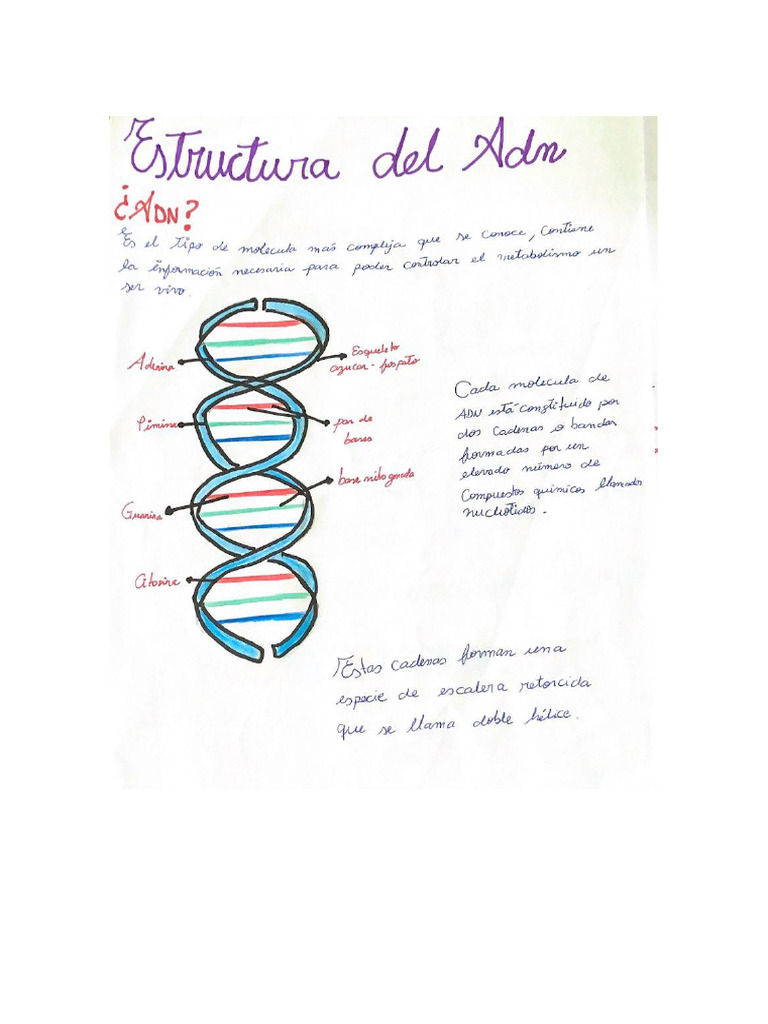 Estructura del Adn
¿ADN?
Es el tipo de molecula más compleja que se conoce, Contiene
la información necesaria para poder controlar el metabolismo un
ser vivo.
Adenina
Esqueleto
azucar - fosfato
Pimine
par de
bases
base nitogenada
Guanina
Citosine
Cada molecula de
ADN está constituido por
dos cadenas o bandas
formadas por un
elevado número de
Compuestos químicos llamados
nucleotidos.
Estas cadenas forman una
especie de escalera retorcida
que se llama doble hélice.